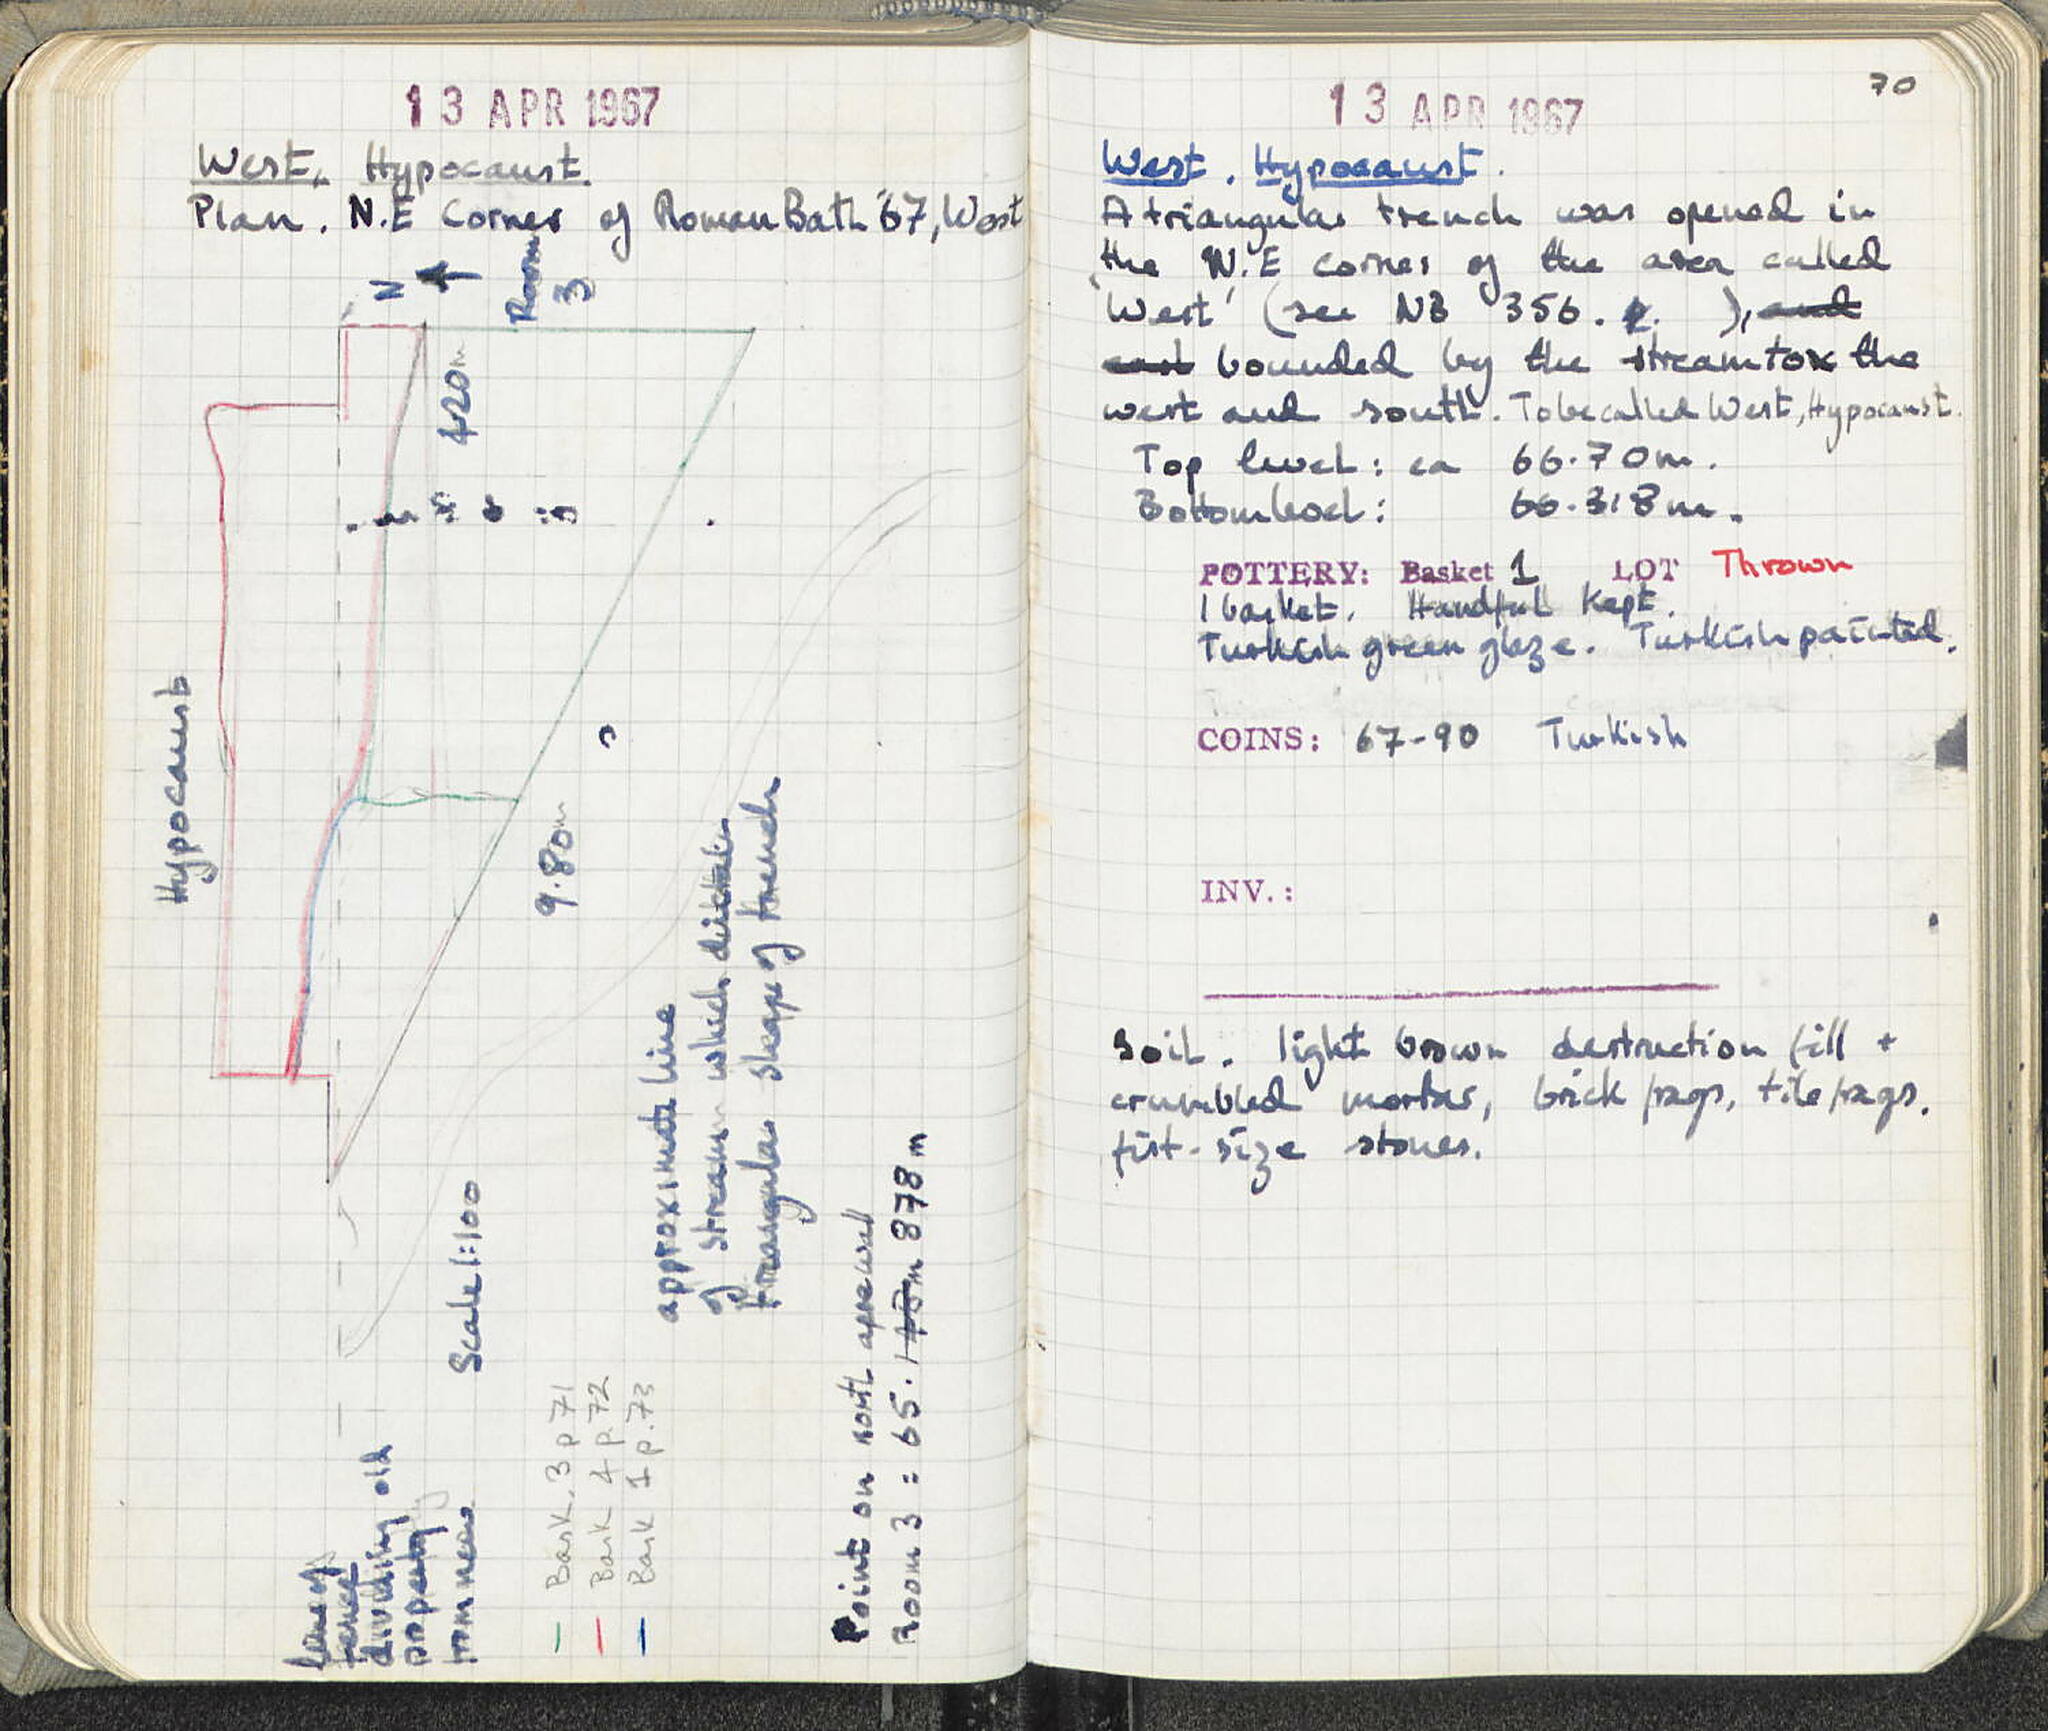 13 APR 1967
West, Hypocaust.
Plan. N.E Corner of Roman Bath '67, West
N
Room
3
4.20m
Hypocaust
9.80m
approximate line
of stream which dictates
triangular shape of trench
Scale 1:100
line of
fence
dividing old
property
from new
Bask. 3 p 71
Bask 4 p. 72
Bask 1 p. 73
Point on north apse wall
Room 3 = 65. 878 m
70
13 APR 1967
West. Hypocaust.
A triangular trench was opened in
the N.E corner of the area called
'West' (see NB 356. p. ), and
and bounded by the stream to the
west and south. To be called West, Hypocaust.
Top level: ca 66.70m.
Bottom level: 66.318m.
POTTERY: Basket 1 LOT Thrown
1 basket. Handful Kept.
Turkish green glaze. Turkish painted.
COINS: 67-90 Turkish
INV.:
Soil. light brown destruction fill +
crumbled mortar, brick frags, tile frags.
fist-size stones.